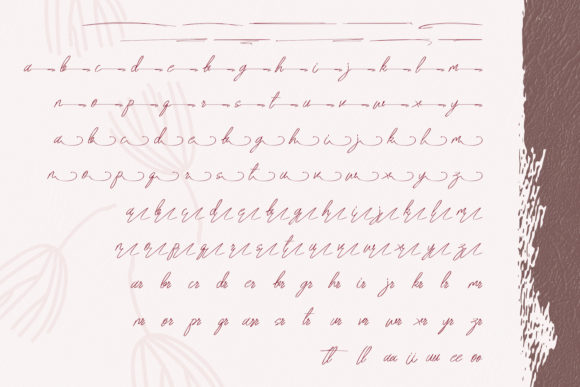 a b c d e f g h i j k l m
n o p q r s t u v w x y
a b c d e f g h i j k l m
n o p q r s t u v w x y z
a b c d e f g h i j k l m
n o p q r s t u v w x y z
ar br cr dr er fr gr hr ir jr kr lr mr
nr or pr qr rr sr tr ur vr wr xr yr zr
tt ll aa ii uu ee oo